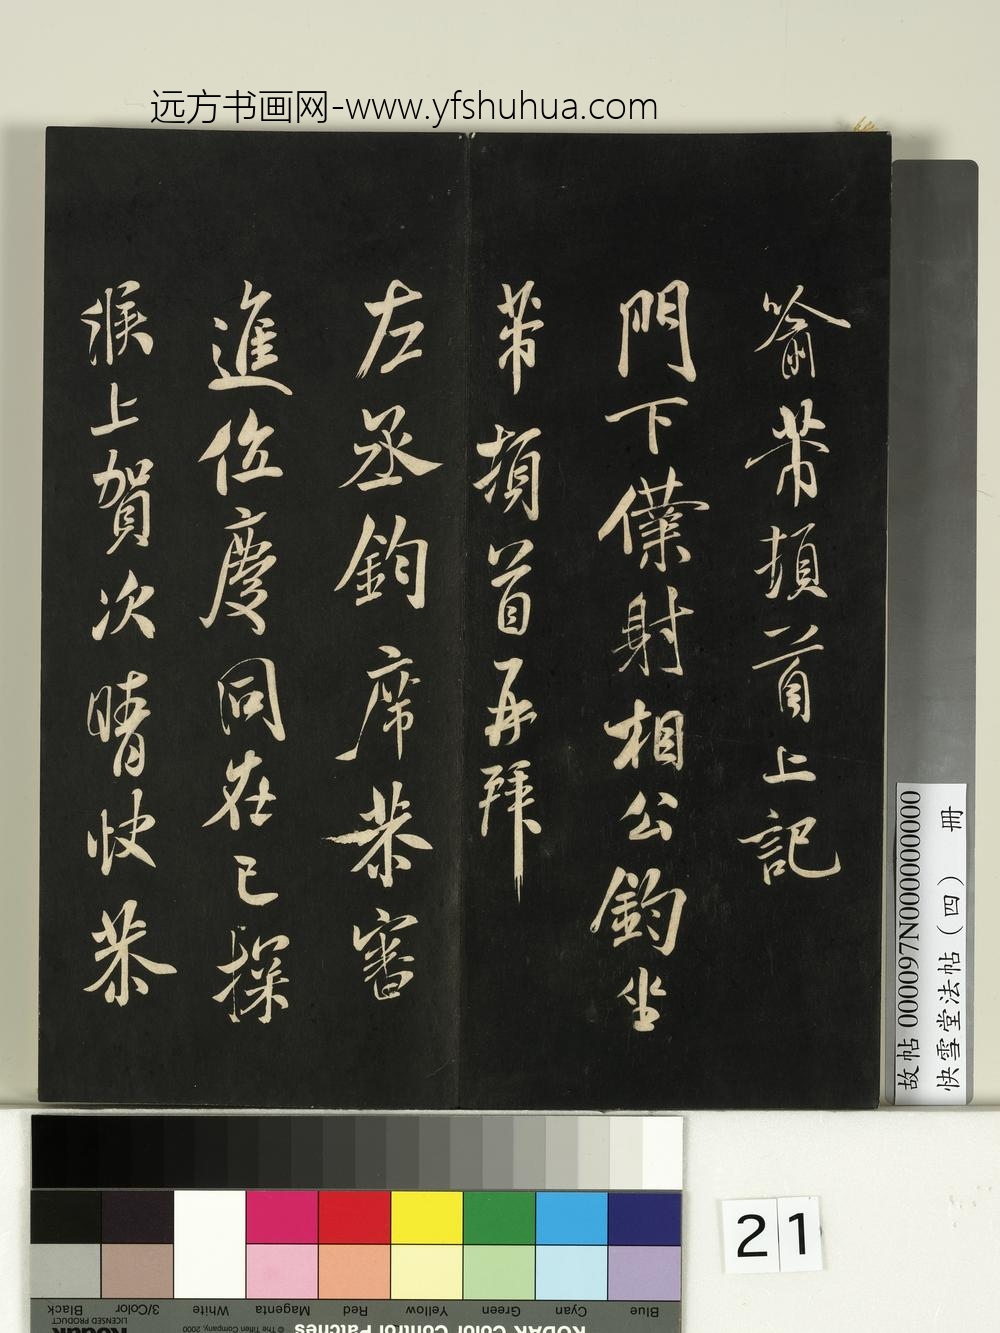 远方书画网-www.yfshuhua.com
芾頓首上記
門下僕射相公鈞坐
芾頓首再拜
左丞鈞席恭審
進位慶同在已探
候上賀次晴快恭
故帖 000097N000000000
快雪堂法帖（四） 冊
21
Blue Cyan Green Yellow Red Magenta White 3/Color Black
KODAK Color Control Patches
© The Tiffen Company, 2000
Kodak
LICENSED PRODUCT